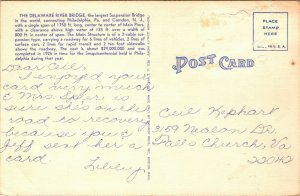 THE DELAWARE RIVER BRIDGE, the largest Suspension Bridge
in the world, connecting Philadelphia, Pa. and Camden, N. J.,
with a single span of 1750 ft. long, center to center of Main Piers,
with a clearance above high water of 135 ft. over a width of
800 ft. in center of span. The Main Structure is of a 3-cable suspension
type, carrying a roadway for 6 lines of vehicles, 2 lines of
surface cars, 2 lines for rapid transit and 2 ten foot sidewalks
above the roadway. The cost is about $29,000,000 and was
completed in 1926 in time for the Sesquicentennial held in Philadelphia
during that year.
PLACE
STAMP
HERE
POST CARD
Dear Ceil:
I enjoyed your
card very much
Mrs is
sure she's on the
road to recovery
because you &
Jeff sent her a
card
Lilley
Ceil Kephart
3159 Dr
Falls Church, Va
22042